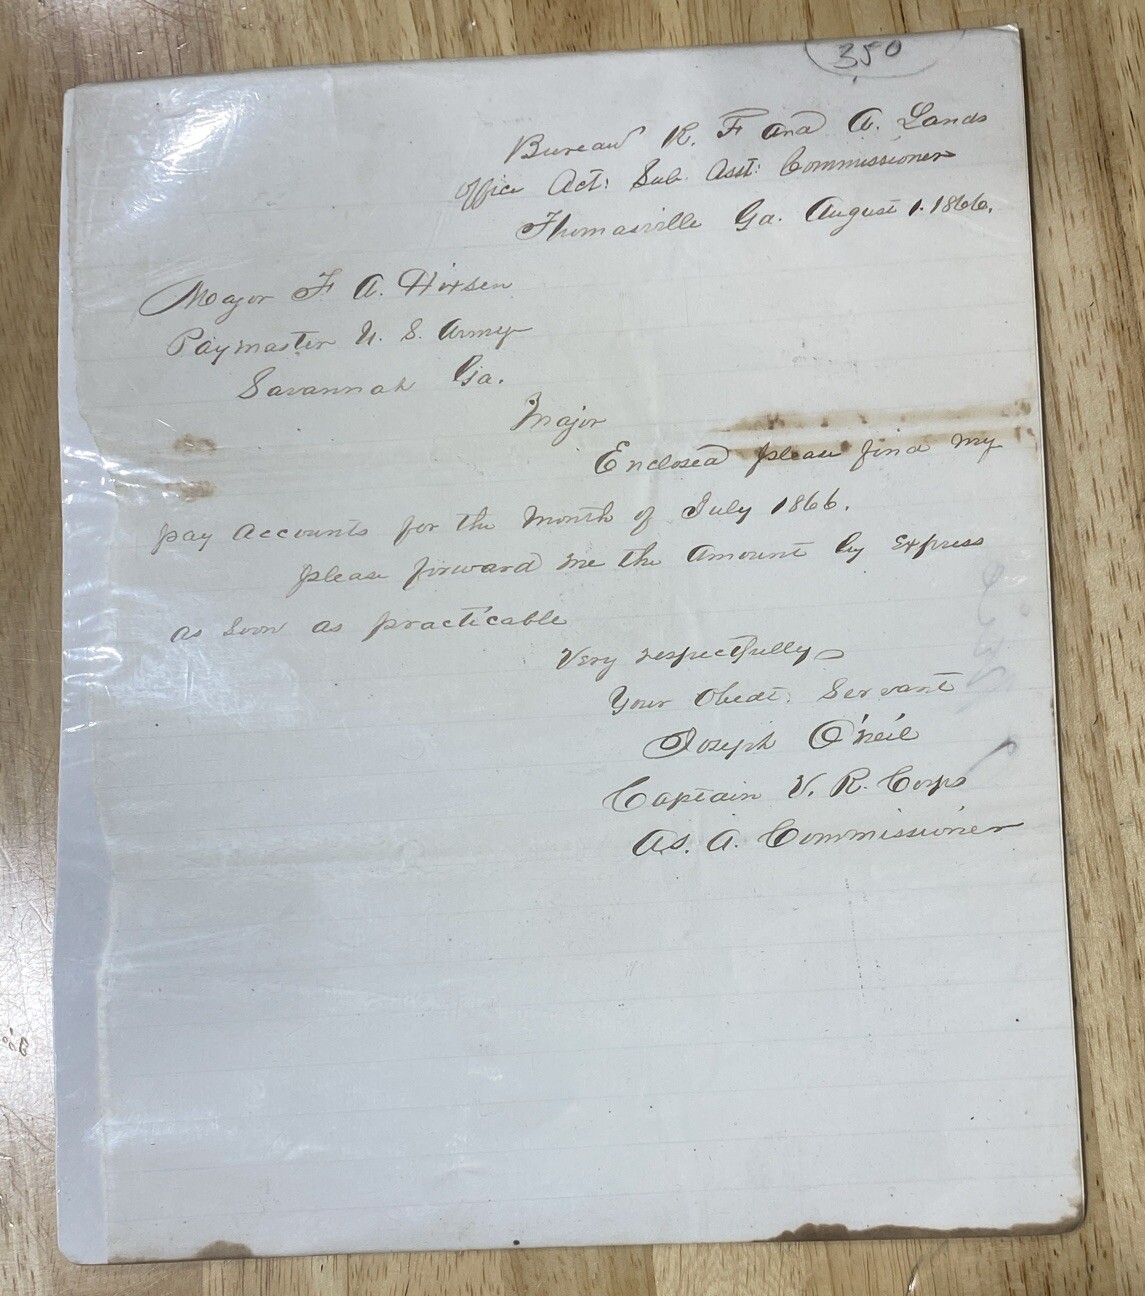 350
Bureau R. F and A. Lands
Office Act: Sub. Asst: Commissioner
Thomasville Ga. August 1. 1866.
Major F A.
Paymaster U. S. Army
Savannah Ga.
Major
Enclosed please find my
pay accounts for the Month of July 1866.
please forward me the Amount by Express
as soon as practicable
Very respectfully
Your Obedt. Servant
Joseph O'neil
Captain V. R. Corps
As. A. Commissioner